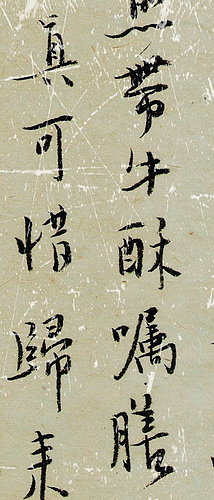 無帶牛酥囑膳
真可惜歸來